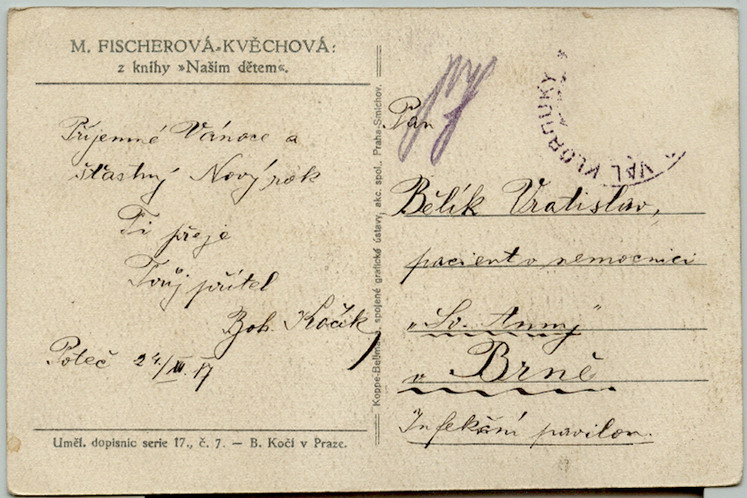 M. FISCHEROVÁ-KVĚCHOVÁ:
z knihy »Našim dětem«.
Příjemné Vánoce a
šťastný Nový rok
Ti přeje
Tvůj přítel
Boh. Kočík
Poteč 24/XII. 17
Uměl. dopisnic serie 17., č. 7. — B. Kočí v Praze.
Koppe-Bellmann, spojené grafické ústavy, akc. spol., Praha-Smíchov.
VAL KLOBOUKY
Pan
Bělík Vratislav,
pacient v nemocnici
„Sv. Anny"
v Brně
Infekční pavilon.